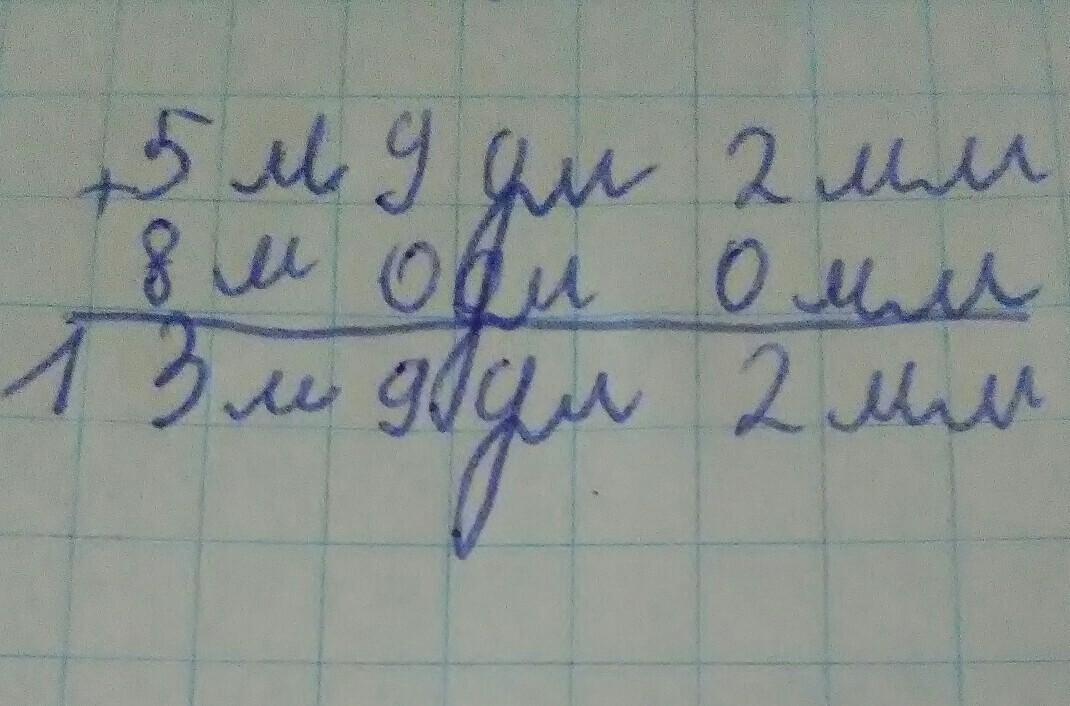 +5 м 9 дм 2 мм
8 м 0 дм 0 мм
13 м 9 дм 2 мм